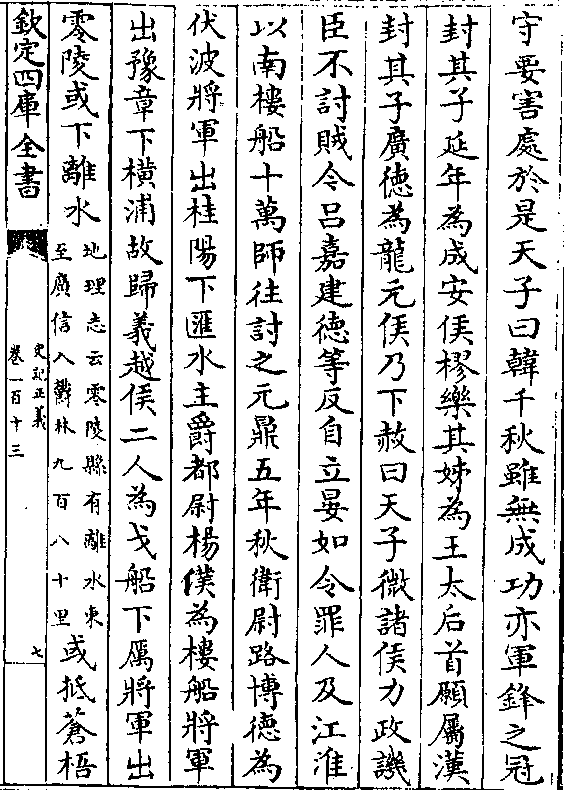 守要害處於是天子曰韓千秋雖無成功亦軍鋒之冠
封其子延年為成安侯樛樂其姊為王太后首願屬漢
封其子廣德為龍亢侯乃下赦曰天子微諸侯力政譏
臣不討賊今吕嘉建德等反自立晏如令罪人及江淮
以南樓船十萬師往討之元鼎五年秋衛尉路博德為
伏波將軍出桂陽下匯水主爵都尉楊僕為樓船將軍
出豫章下橫浦故歸義越侯二人為戈船下厲將軍出
零陵或下離水
地理志云零陵縣有離水東
至廣信入鬱林九百八十里
或抵蒼梧
欽定四庫全書
史記正義
卷一百十三
七